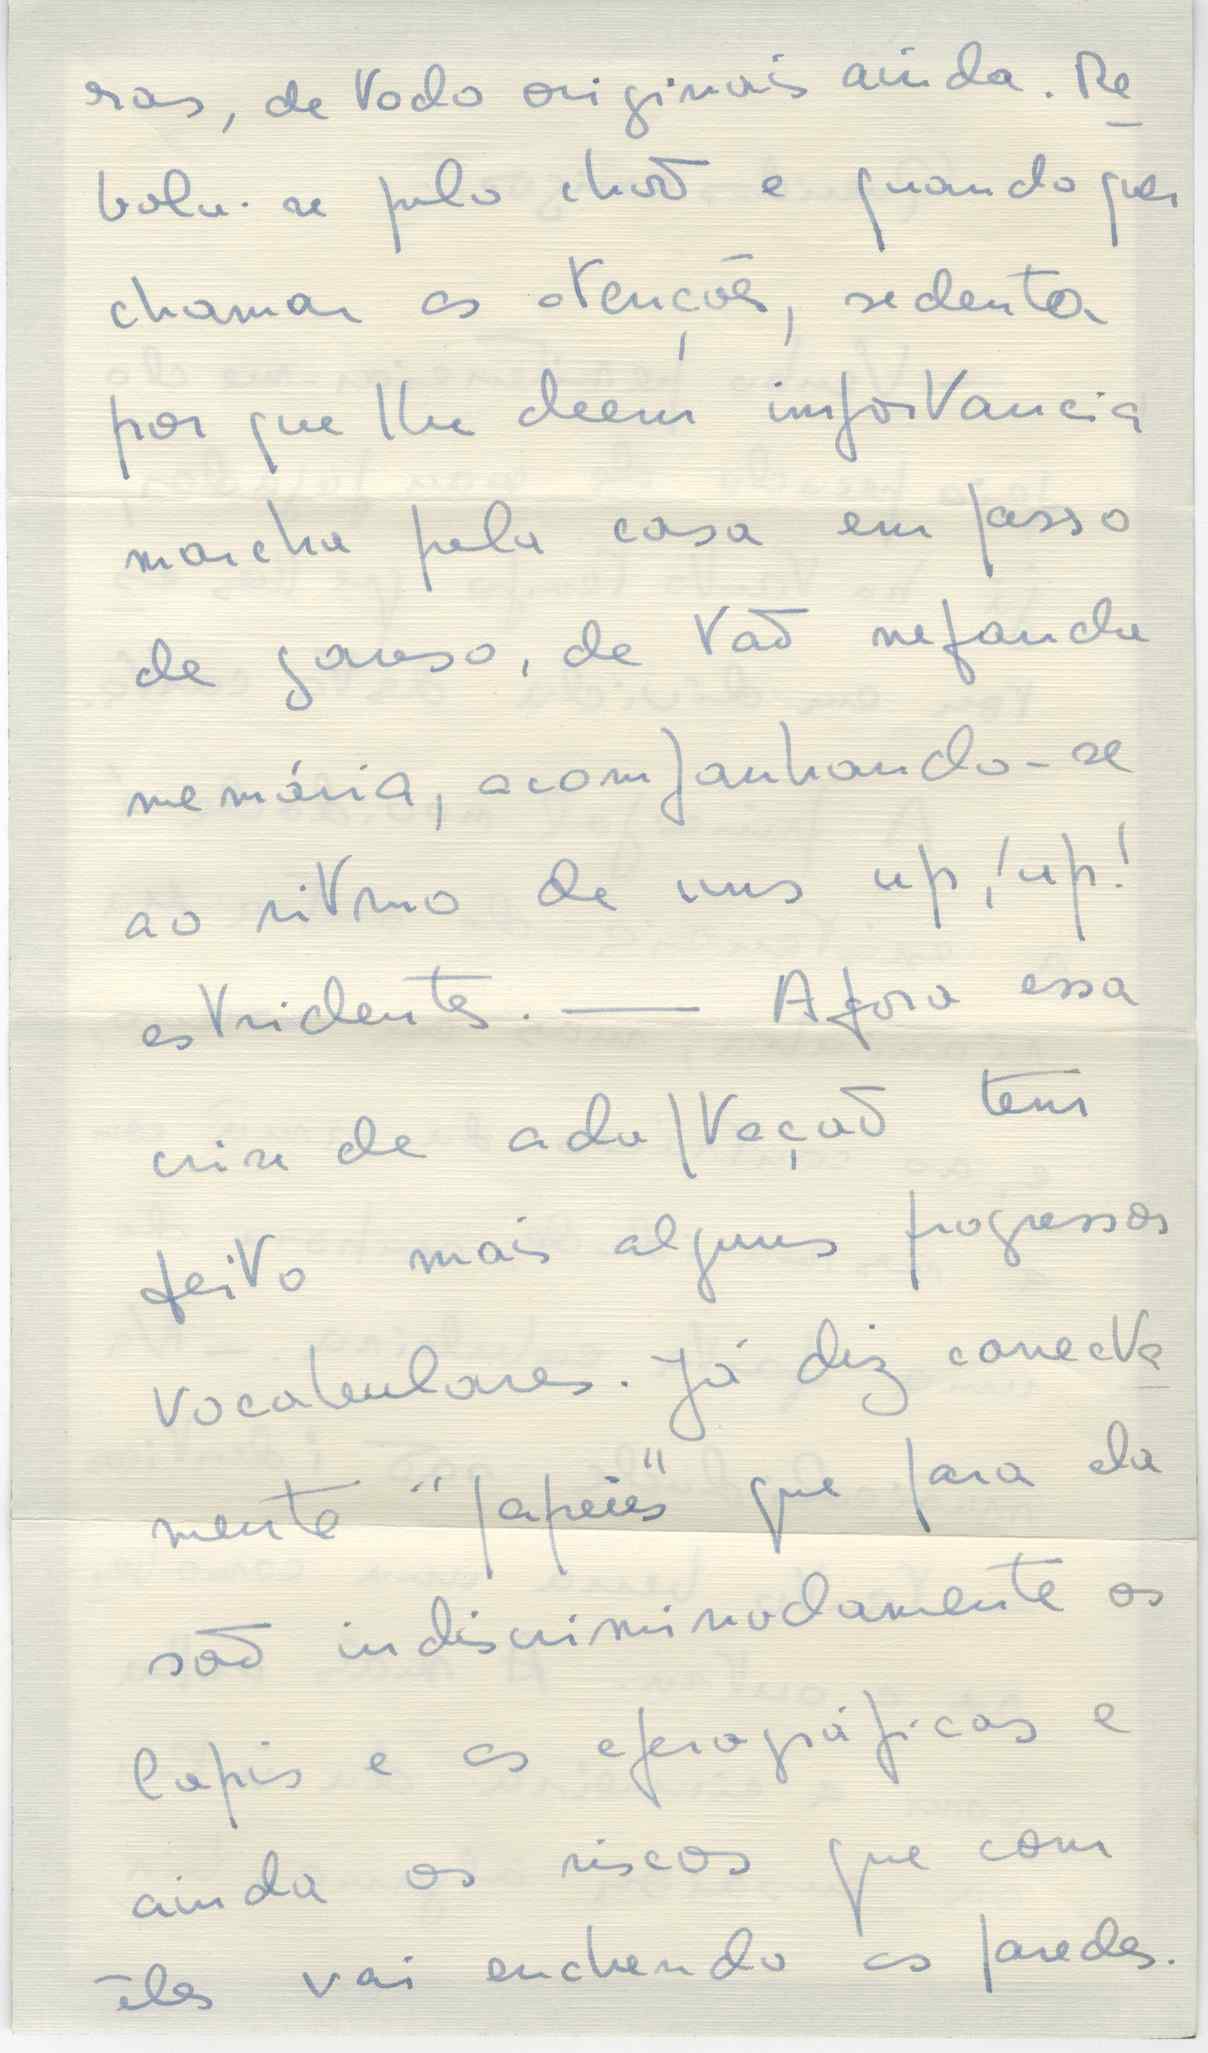 ras, de todo originais ainda. Re
bola-se pelo chaõ e quando quer
chamar as atençoẽs, sedenta
por que lhe deem importancia
marcha pela casa em passo
de ganso, de taõ nefanda
memória, acompanhando-se
ao ritmo de uns up! up!
estridentes. — Afora essa
crise de adaptaçaõ tem
feito mais alguns progressos
vocabulares. Já diz correcta
mente "papeies" que para ela
saõ indiscriminadamente os
lapis e as eferográficas e
ainda os riscos que com
êles vai enchendo as paredes.